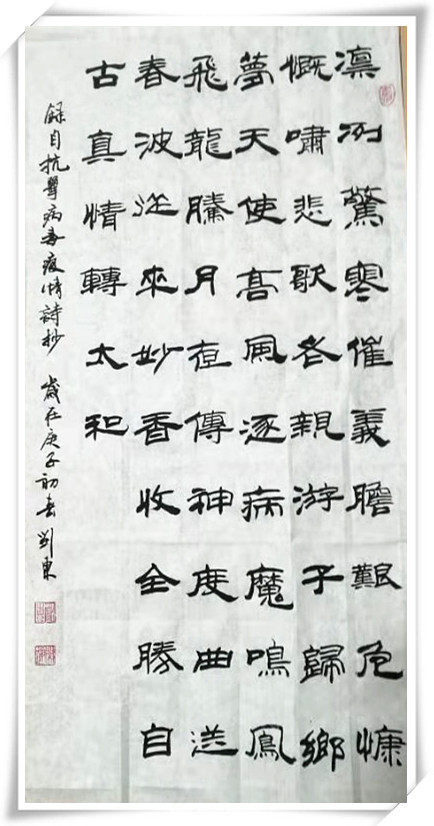 凛冽驚寒催義膽艱危慷
慨嘯悲歌老親游子歸鄉
夢天使高風逐病魔鳴鳳
飛龍騰月夜傳神度曲送
春波從來妙香收全勝自
古真情轉太和
録自抗擊病毒疫情詩抄 歲在庚子初春劉東